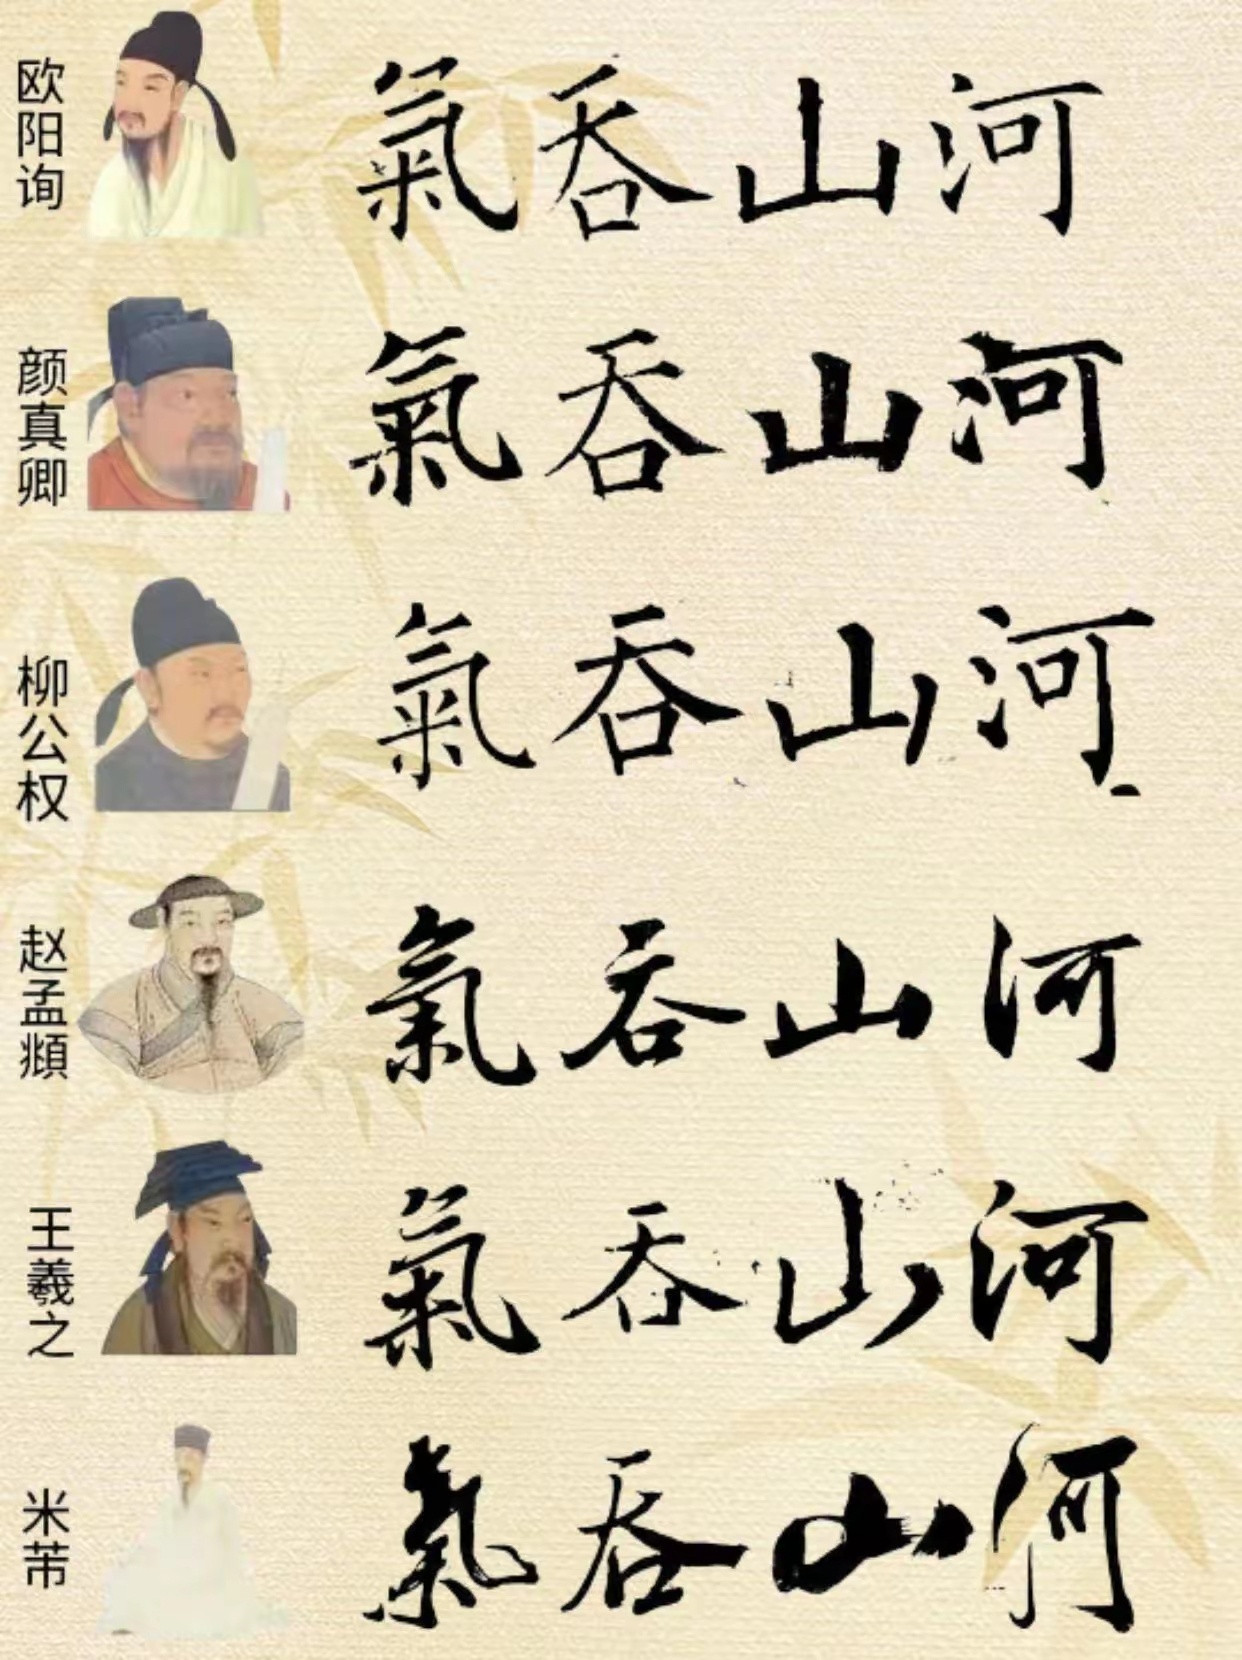 欧阳询
氣吞山河
颜真卿
氣吞山河
柳公权
氣吞山河
赵孟頫
氣吞山河
王羲之
氣吞山河
米芾
氣吞山河